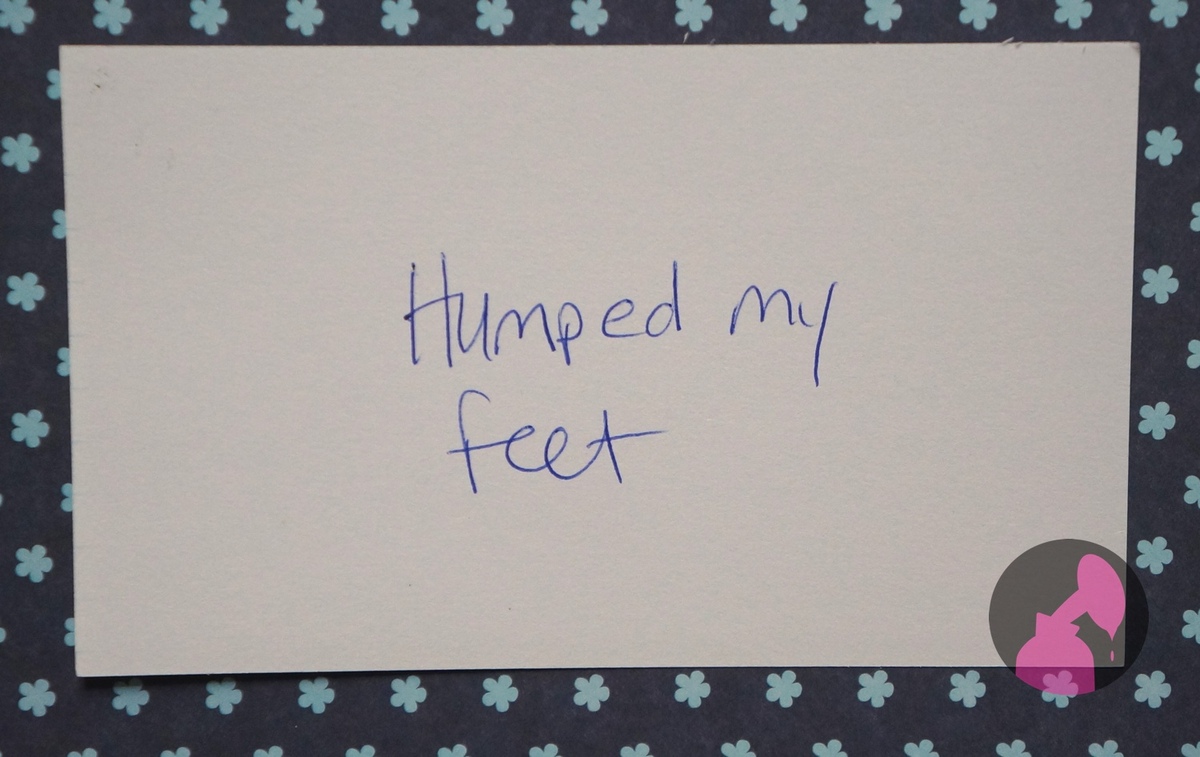 Humped my
feet